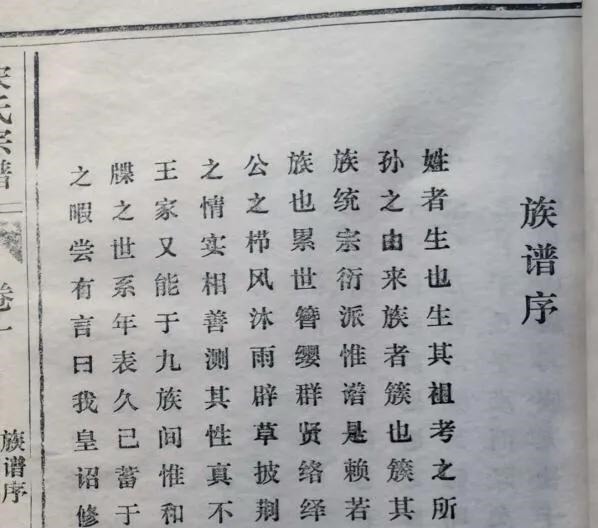 族谱序
姓者生也生其祖考之所
孙之由来族者簇也簇其
族统宗衍派惟谱是赖若
族也累世簪缨群贤络绎
公之栉风沐雨辟草披荆
之情实相善测其性真不
王家又能于九族间惟和
牒之世系年表久已蓄于
之暇尝有言曰我皇诏修
宋氏宗谱
卷一
族谱序